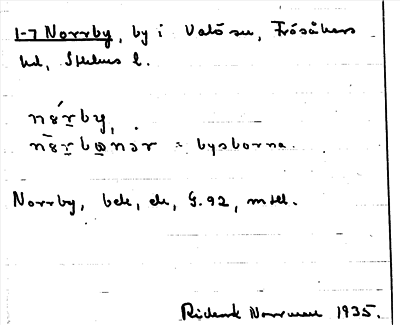 1-7 Norrby, by i Valö sn, Frösåkers
hd, Sthlms l.
nǒ́r̲by,
= bysborna.
Norrby, bek, ek, G.92, mtl.
Rickard Norrman 1935.